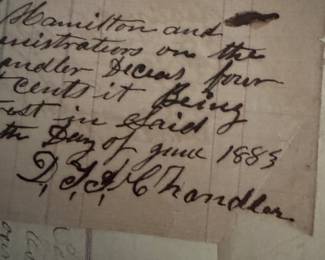 Hamilton and
anistrators on the
andler Deceas four
cents it Being
est in Said
th Day of June 1883
D. T. J. Chandler